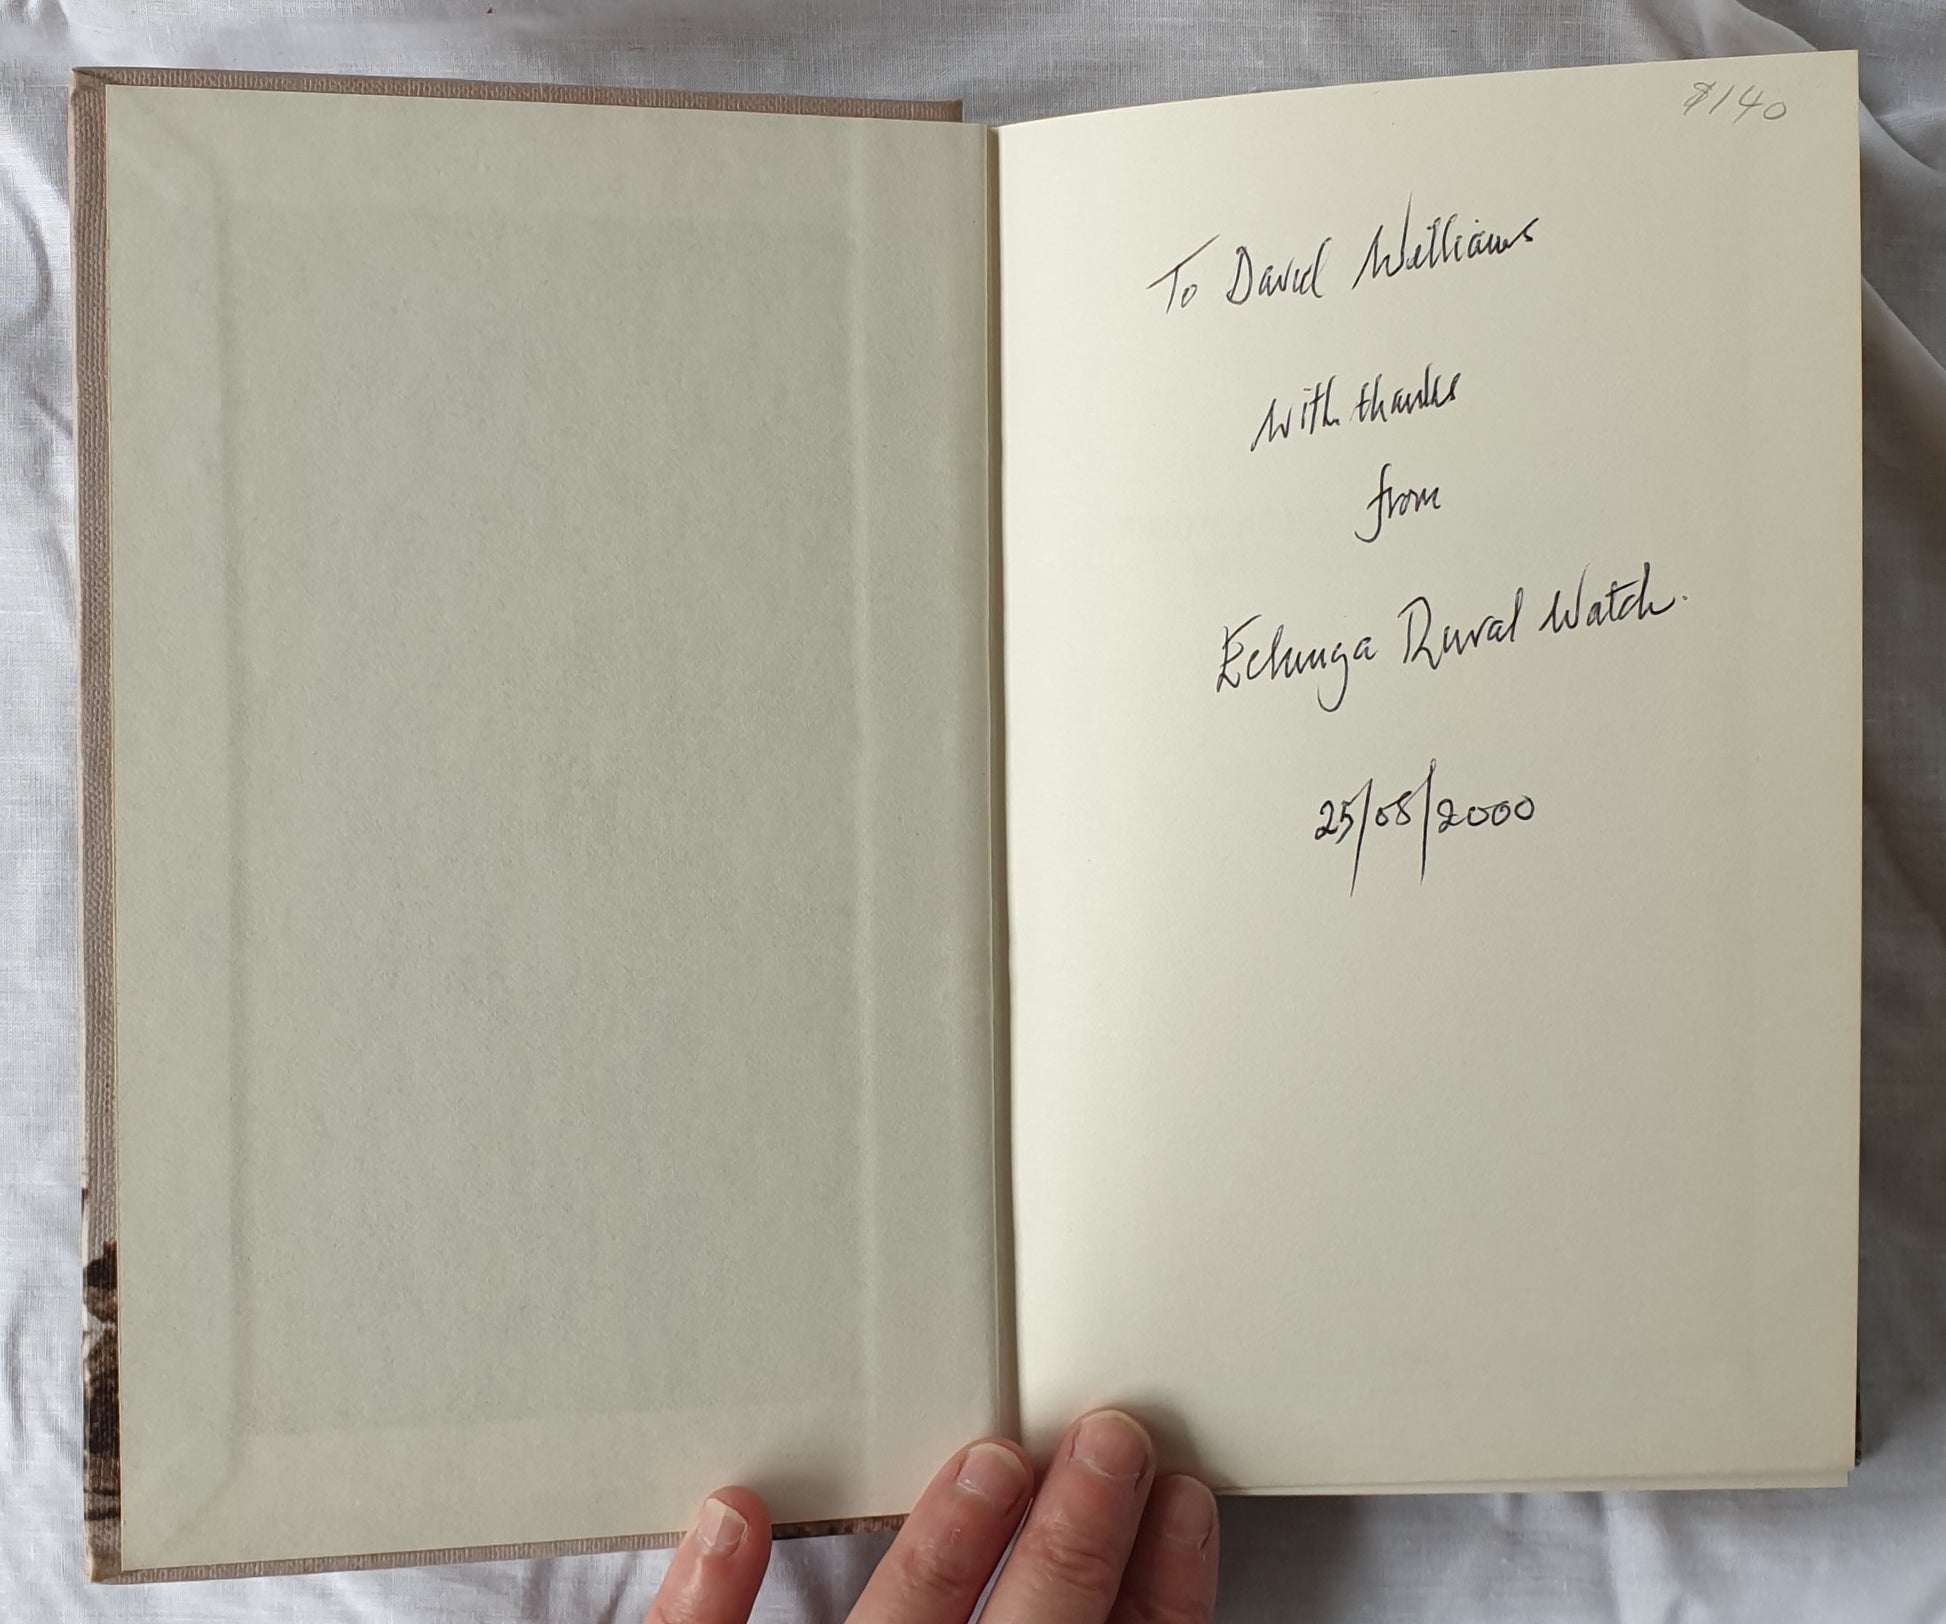 $140
To David Williams
with thanks
from
Echunga Rural Watch.
25/08/2000